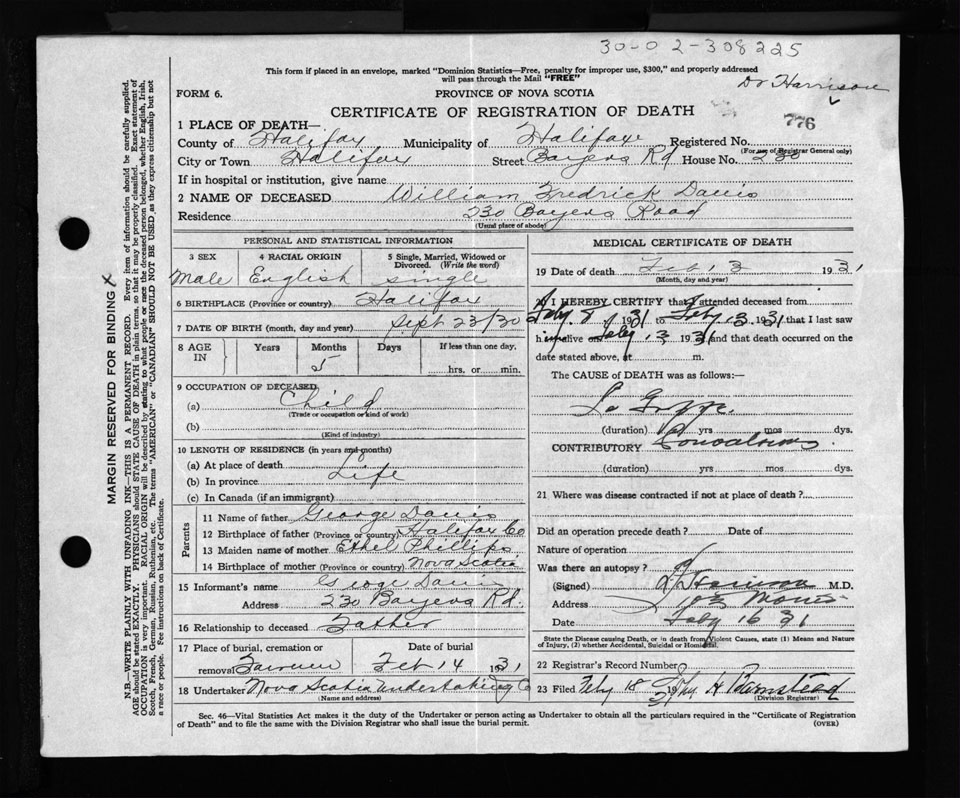 30-02-308225
This form if placed in an envelope, marked "Dominion Statistics—Free, penalty for improper use, $300," and properly addressed
will pass through the Mail "FREE"
Dr Harrison
FORM 6. PROVINCE OF NOVA SCOTIA
CERTIFICATE OF REGISTRATION OF DEATH
776
1 PLACE OF DEATH—
County of Halifax Municipality of Halifax Registered No.
(For use of Registrar General only)
City or Town Halifax Street Bayers Rd House No. 230
If in hospital or institution, give name
2 NAME OF DECEASED William Fredrick Davis
Residence 230 Bayers Road
(Usual place of abode)
PERSONAL AND STATISTICAL INFORMATION
3 SEX 4 RACIAL ORIGIN 5 Single, Married, Widowed or Divorced. (Write the word)
Male English single
6 BIRTHPLACE (Province or country) Halifax
7 DATE OF BIRTH (month, day and year) Sept 23/30
8 AGE IN Years Months Days If less than one day,
5 hrs. or min.
9 OCCUPATION OF DECEASED
(a) Child
(Trade or occupation or kind of work)
(b)
(Kind of industry)
10 LENGTH OF RESIDENCE (in years and months)
(a) At place of death
(b) In province Life
(c) In Canada (if an immigrant)
Parents
11 Name of father George Davis
12 Birthplace of father (Province or country) Halifax Co
13 Maiden name of mother Ethel Phillips
14 Birthplace of mother (Province or country) Nova Scotia
15 Informant's name George Davis
Address 230 Bayers Rd.
16 Relationship to deceased Father
17 Place of burial, cremation or removal Date of burial
Feb 14 1931
18 Undertaker Nova Scotia Undertaking Co
(Name and address)
MEDICAL CERTIFICATE OF DEATH
19 Date of death Feb 13 1931
(Month, day and year)
20 I HEREBY CERTIFY that I attended deceased from
Feby. 8 1931 to Feby 13 1931 that I last saw
him alive on Feby 13 1931 and that death occurred on the
date stated above, at m.
The CAUSE OF DEATH was as follows:—
La Grippe.
(duration) yrs mos dys.
CONTRIBUTORY Convulsions
(duration) yrs mos dys.
21 Where was disease contracted if not at place of death?
Did an operation precede death? Date of
Nature of operation
Was there an autopsy?
(Signed) Harrison M.D.
Address
Date Feby 16 31
State the Disease causing Death, or in death from Violent Causes, state (1) Means and Nature
of Injury, (2) whether Accidental, Suicidal or Homicidal.
22 Registrar's Record Number
23 Filed Feby 18
(Division Registrar)
Sec. 46—Vital Statistics Act makes it the duty of the Undertaker or person acting as Undertaker to obtain all the particulars required in the "Certificate of Registration
of Death" and to file the same with the Division Registrar who shall issue the burial permit. (OVER)
MARGIN RESERVED FOR BINDING
N.B.—WRITE PLAINLY WITH UNFADING INK—THIS IS A PERMANENT RECORD. Every item of information should be carefully supplied.
AGE should be stated EXACTLY. PHYSICIANS should STATE CAUSE OF DEATH in plain terms, so that it may be properly classified. Exact statement of
OCCUPATION is very important. RACIAL ORIGIN will be described by stating to what people or race the deceased person belonged, whether English, Irish,
Scotch, French, German, Russian, Ruthenian, etc. The terms "AMERICAN" or "CANADIAN" SHOULD NOT BE USED as they express citizenship but not
a race or people. Fee instructions on back of Certificate.